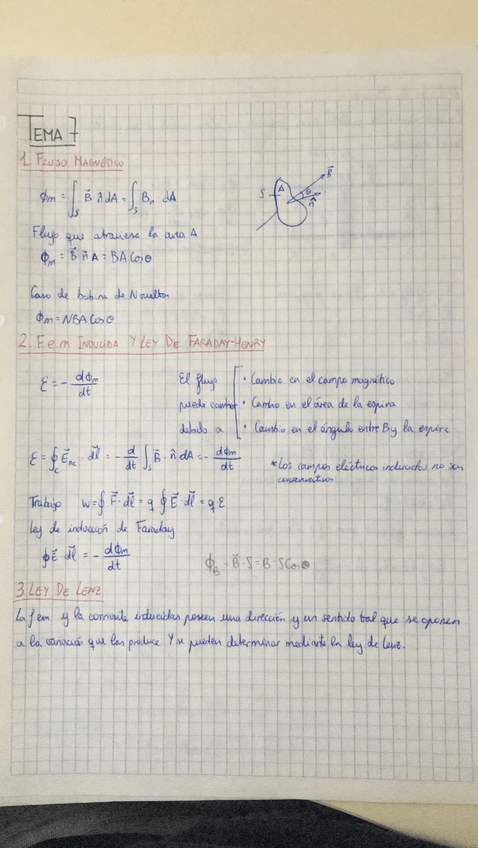 TEMA 7
1. FLUJO MAGNÉTICO
ϕm = ∫s B⃗ n̂ dA = ∫s Bn dA
S A B⃗ θ n̂
Flujo que atraviesa la área A
ϕm = B⃗ n̂ A = BA Cosθ
Caso de bobina de N vueltas
ϕm = NBA Cosθ
2. F.e.m INDUCIDA Y LEY DE FARADAY-HENRY
ε = - dϕm/dt
El flujo puede cambiar debido a
· Cambio en el campo magnético
· Cambio en el área de la espira
· Cambio en el ángulo entre B y la espira
ε = ∮c E⃗nc · dl⃗ = - d/dt ∫s B⃗ · n̂ dA = - dϕm/dt
*Los campos eléctricos inducidos no son
conservativos
Trabajo w = ∮ F⃗ · dl⃗ = q ∮ E⃗ · dl⃗ = q ε
Ley de inducción de Faraday
∮ E⃗ dl⃗ = - dϕm/dt
ϕB = B⃗ · S = B · S Cosθ
3. LEY DE LENZ
La fem y la corriente inducidas poseen una dirección y un sentido tal que se oponen
a la variación que las produce. Y se pueden determinar mediante la ley de Lenz.